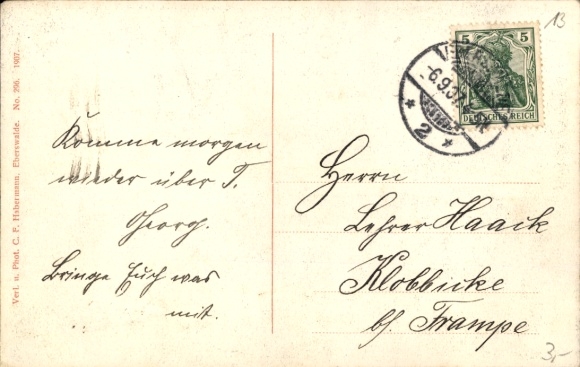 Komme morgen
wieder über T.
Georg.
Bringe Euch was
mit.
Herrn
Lehrer Haack
Klobbicke
b/ Trampe
5 5
DEUTSCHES REICH
-6.9.
* 2 *
13
3,-
Verl. u. Phot. C. F. Habermann, Eberswalde. No. 296. 1907.